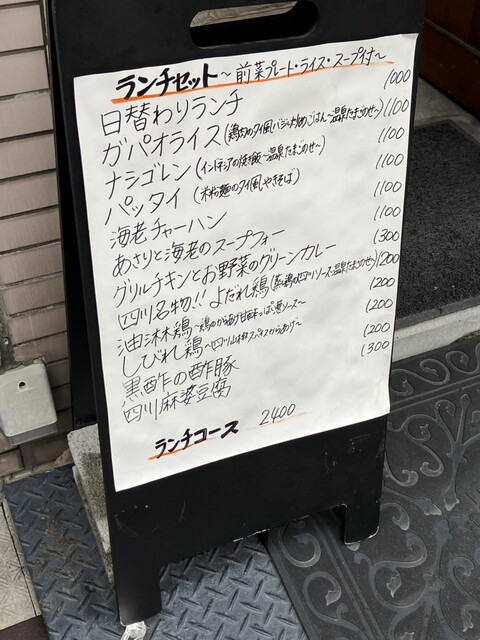 ランチセット～前菜プレート・ライス・スープ付～
日替わりランチ 1000
ガパオライス(鶏肉のタイ風バジル炒めごはん～温泉たまごのせ～) 1100
ナシゴレン(インドネシアの焼飯～温泉たまごのせ～) 1100
パッタイ(米粉麺のタイ風やきそば) 1100
海老チャーハン 1100
あさりと海老のスープフォー 1100
グリルチキンとお野菜のグリーンカレー 1300
四川名物!!よだれ鶏(蒸し鶏の四川ソース～温泉たまごのせ～) 1200
油淋鶏～鶏のから揚げ甘酢っぱい葱ソース～ 1200
しびれ鶏～四川山椒スパイスからあげ～ 1200
黒酢の酢豚 1200
四川麻婆豆腐 1300
ランチコース 2400